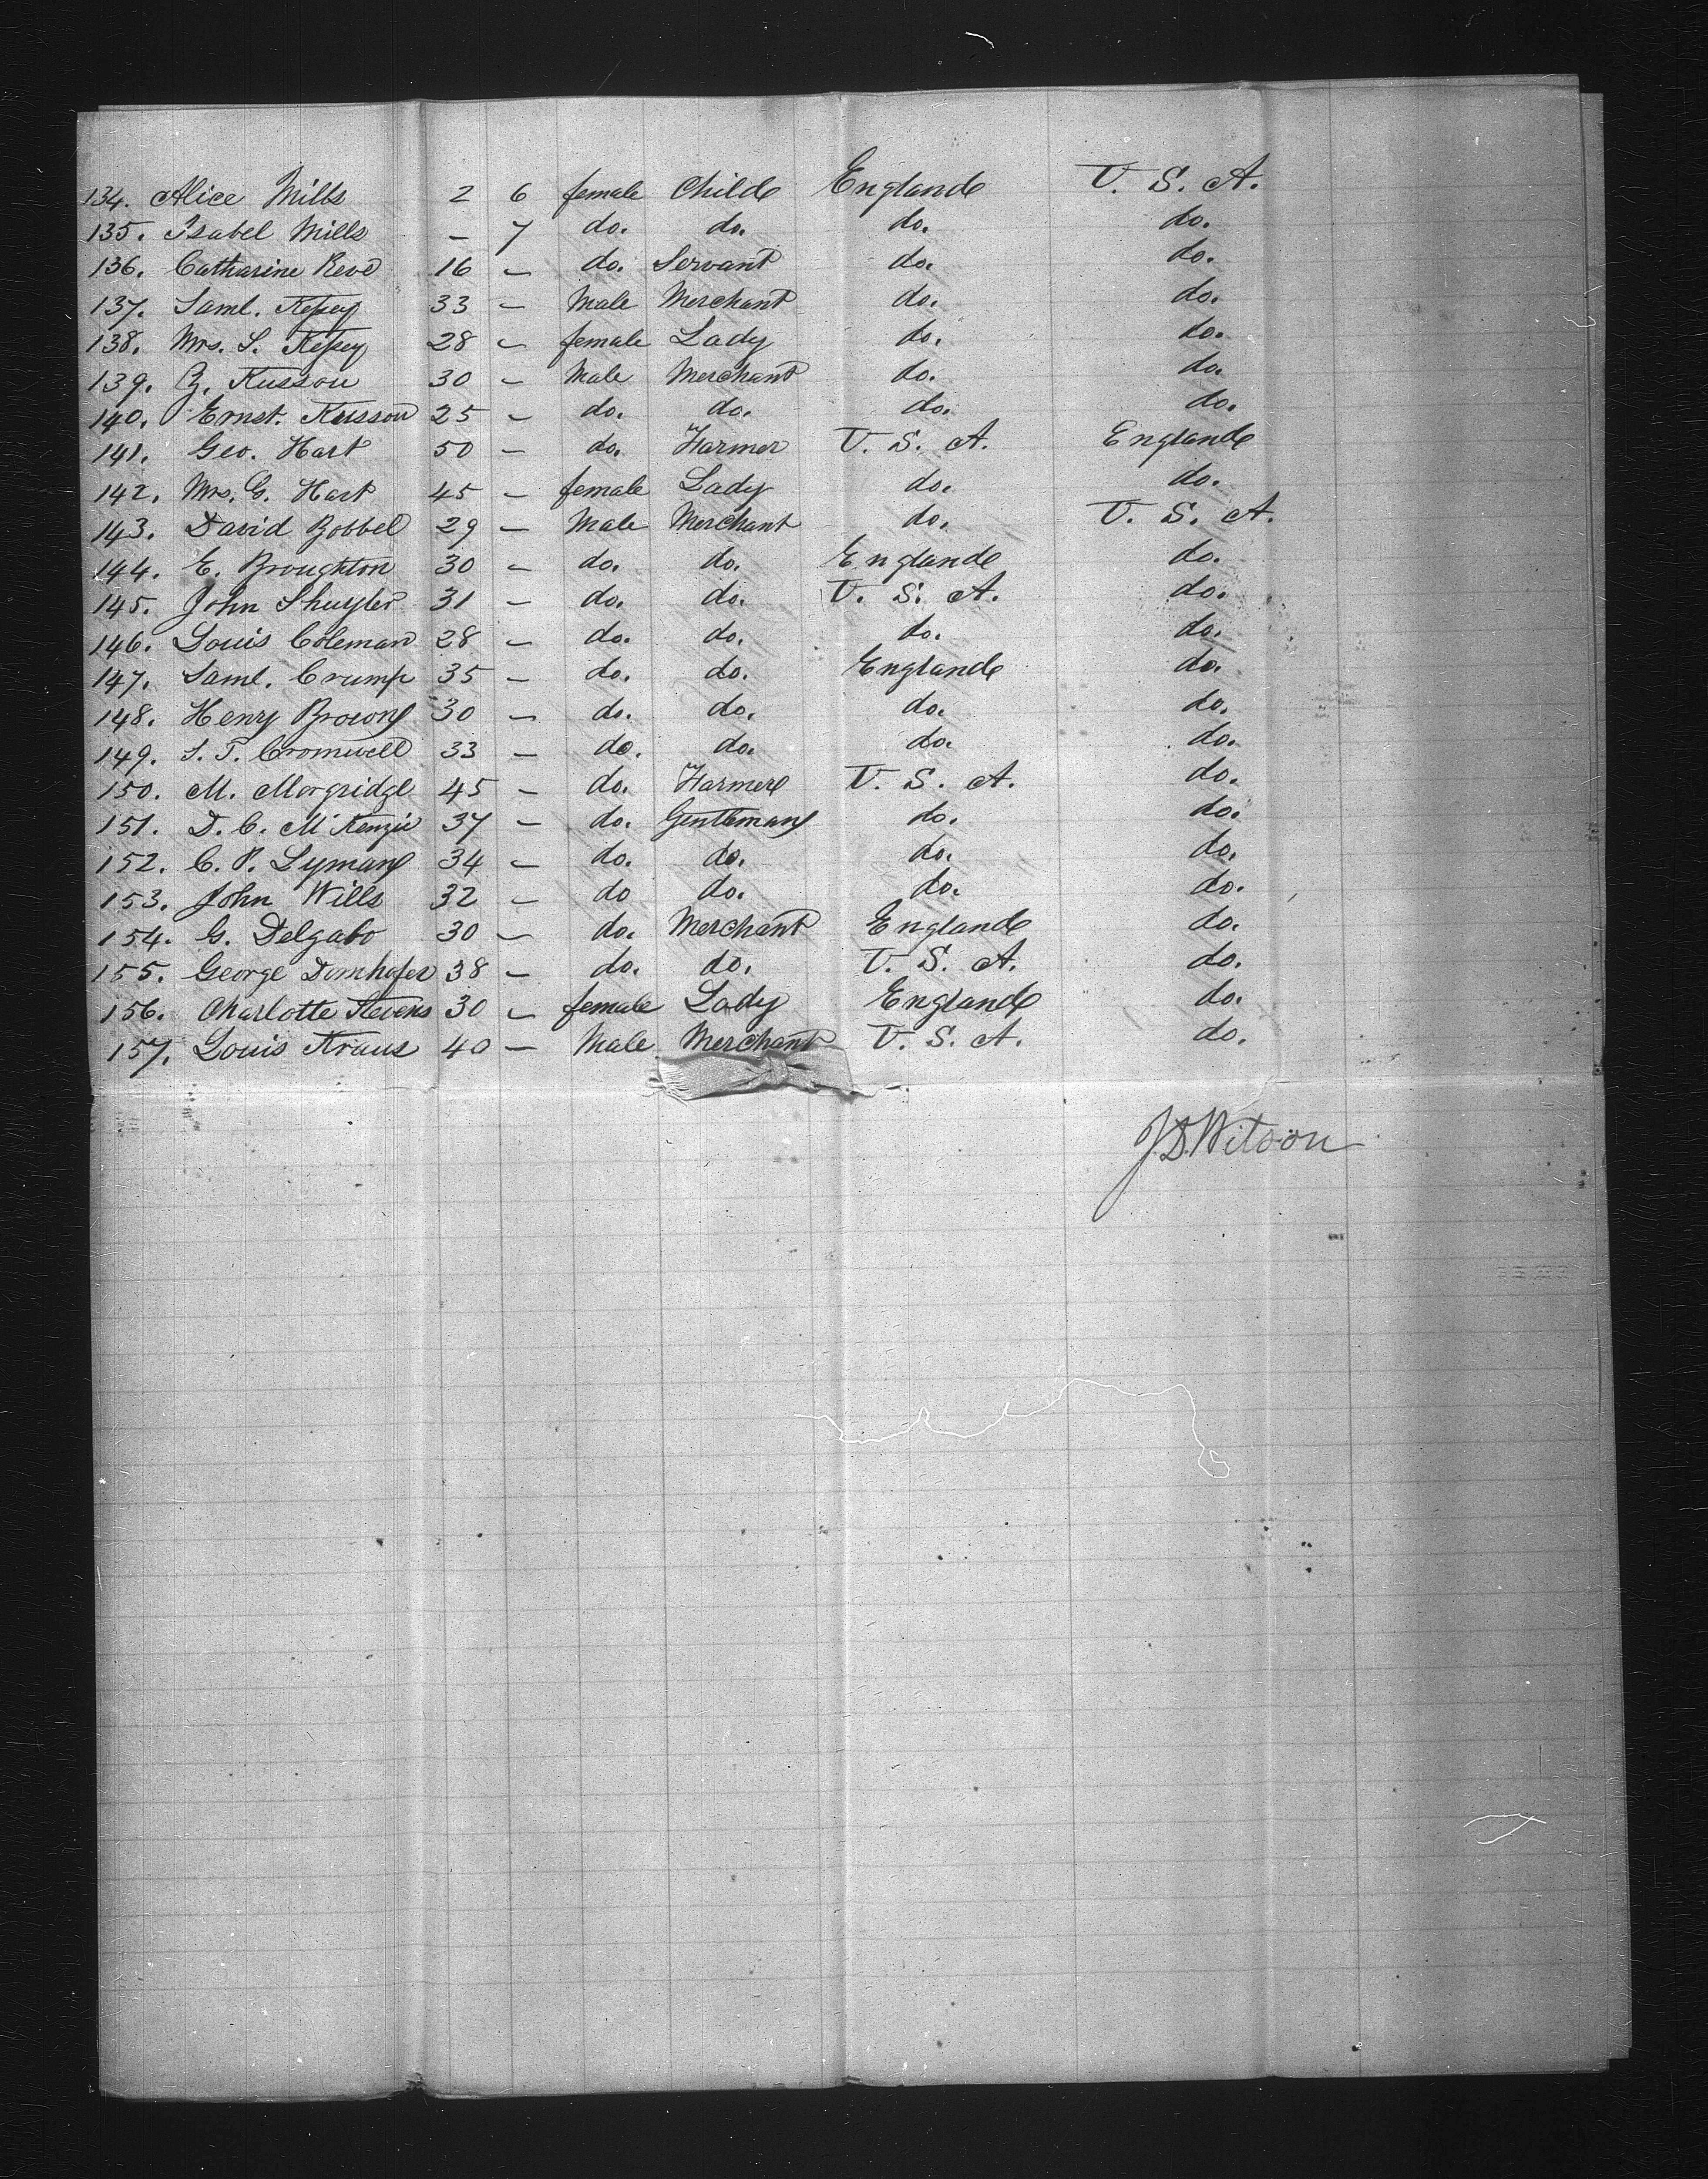 134. Alice Mills 2 6 female Child England U. S. A.
135. Isabel Mills - 7 do. do. do. do.
136. Catharine 16 - do. Servant do. do.
137. Saml. 33 - Male Merchant do. do.
138. Mrs. S. 28 - female Lady do. do.
139. Kusson 30 - Male Merchant do. do.
140. Ernst. Kusson 25 - do. do. do. do.
141. Geo. Hart 50 - do. Farmer U. S. A. England
142. Mrs. G. Hart 45 - female Lady do. do.
143. David 29 - Male Merchant do. U. S. A.
144. E. Broughton 30 - do. do. England do.
145. John Shuyler 31 - do. do. U. S. A. do.
146. Louis Coleman 28 - do. do. do. do.
147. Saml. Crump 35 - do. do. England do.
148. Henry Brown 30 - do. do. do. do.
149. S. T. Cromwell 33 - do. do. do. do.
150. M. Morgridge 45 - do. Farmer U. S. A. do.
151. D. C. McKenzie 37 - do. Gentleman do. do.
152. C. P. Lyman 34 - do. do. do. do.
153. John Wills 32 - do do. do. do.
154. G. Delgabo 30 - do. Merchant England do.
155. George Domhofer 38 - do. do. U. S. A. do.
156. Charlotte Stevens 30 - female Lady England do.
157. Louis Kraus 40 - Male Merchant U. S. A. do.
J. D. Wilson